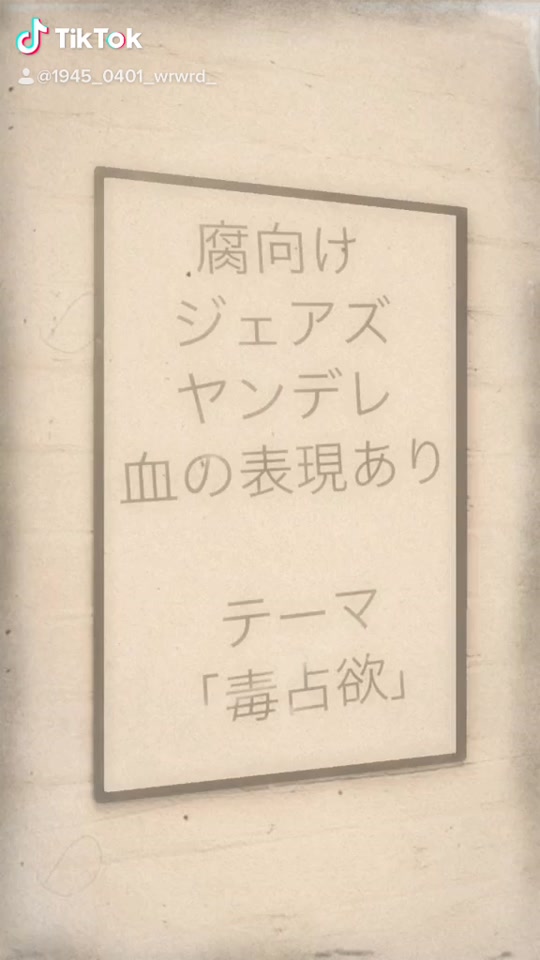 TikTok
@1945_0401_wrwrd_
腐向け
ジェアズ
ヤンデレ
血の表現あり
テーマ
「毒占欲」